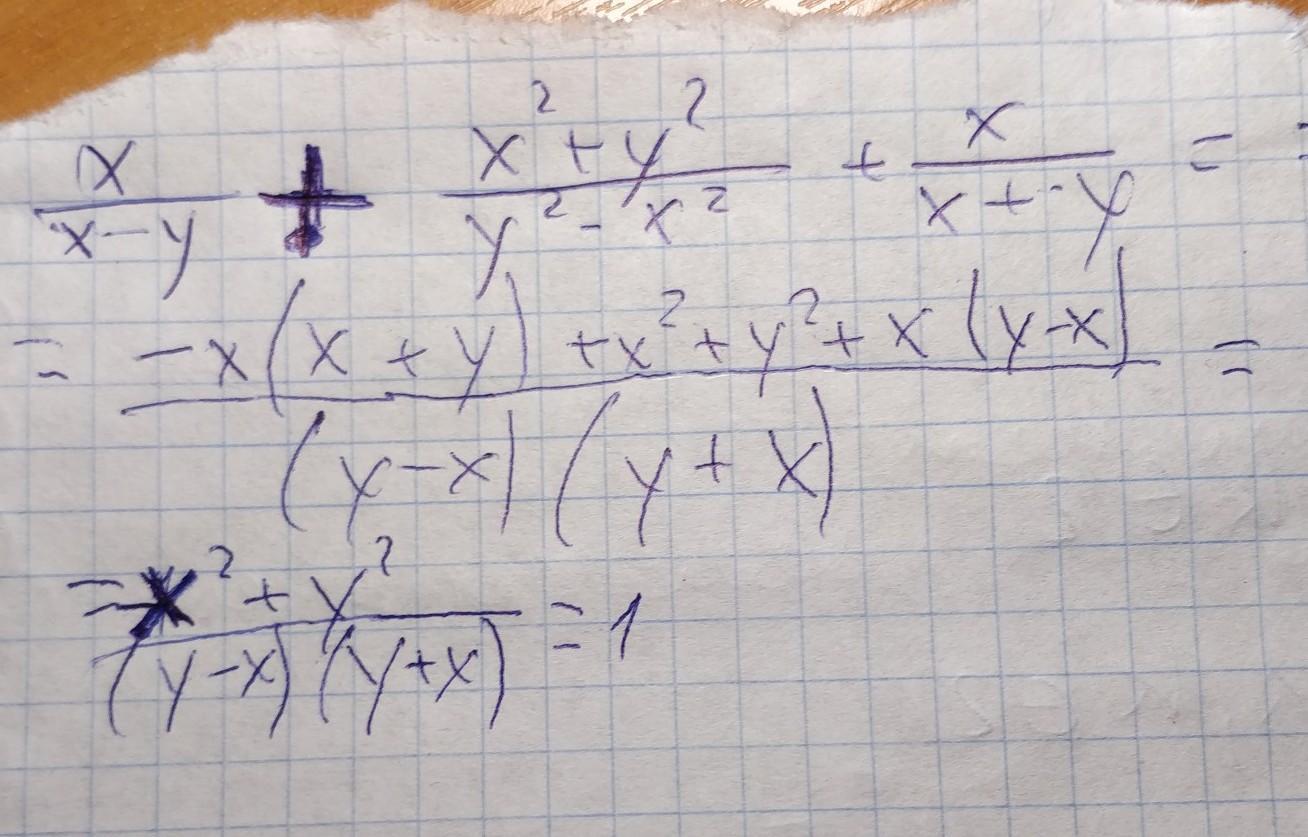 x/(x-y) + (x²+y²)/(y²-x²) + x/(x+y) =
= (-x(x+y)+x²+y²+x(y-x))/((y-x)(y+x)) =
= (-x²+y²)/((y-x)(y+x)) = 1